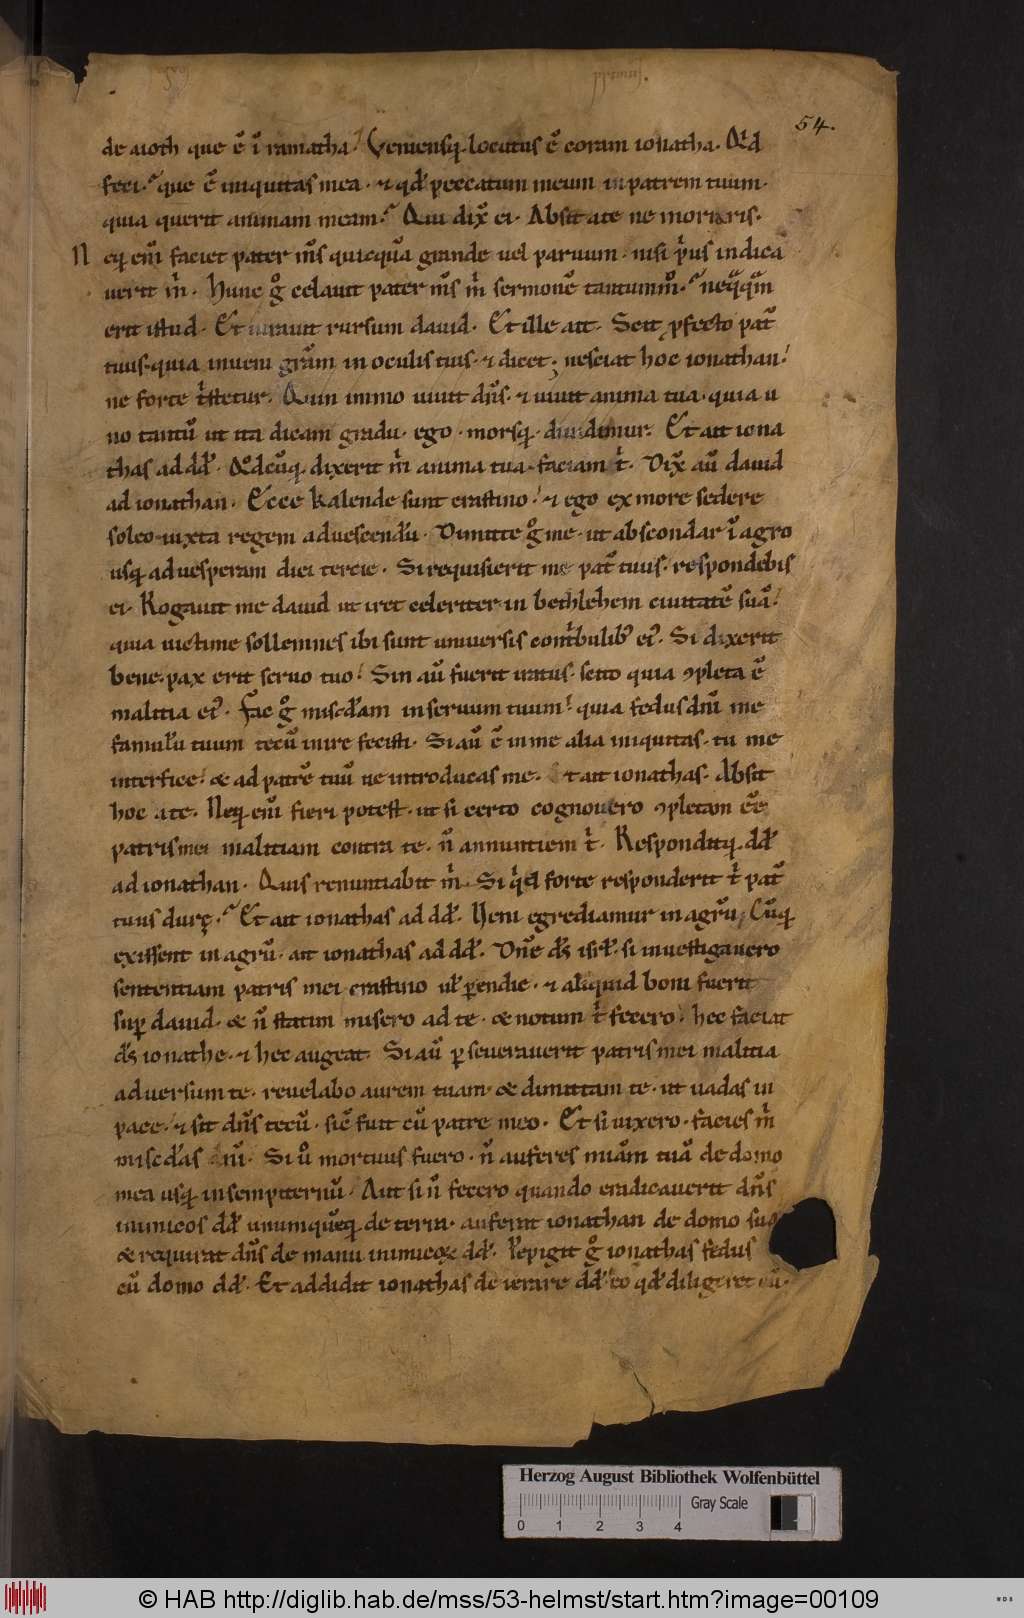 54.
de aioth que ē ī ramatha. Veniensq; locutus ē coram ionatha. Qd
feci. que ē iniquitas mea. & qd peccatum meum in patrem tuum.
quia querit animam meam. Qui dix̄ ei. Absit a te ne moriaris.
N eq; eni᷈ faciet pater ms̄ quicquā grande vel paruum. nisi p'us indica
uerit m'. Hunc g° celauit pater ms̄ m' sermonē tantummº. neq̄q̄m
erit istud. Et iurauit rursum dauid. Et ille ait. Scit ꝓfecto pat᷈
tuus. quia inueni grām in oculis tuis. & dicet; nesciat hoc ionathan.
ne forte t'stetur. Quin immo uiuit dn̄s. & uiuit anima tua. quia u
no tantū ut ita dicam gradu. ego. morsq; diuidimur. Et ait iona
thas ad dd̄. Qdcūq; dixerit m' anima tua. faciam t'. Dix̄ aū dauid
ad ionathan. Ecce kalende sunt crastino. & ego ex more sedere
soleo iuxta regem ad uescendū. Dimitte g° me. ut abscondar ī agro
usq; ad uesperam diei tercie. Si requisierit me pat᷈ tuus. respondebis
ei. Rogauit me dauid ut iret celeriter in bethlehem ciuitatē suā.
quia uictime sollemnes ibi sunt uniuersis cont'bulib; ei᷈. Si dixerit
bene. pax erit seruo tuo. Sin aū fuerit iratus. scito quia ꝯpleta ē
malitia ei᷈. Fac g° misc̄dam in seruum tuum. quia fedus dn̄i me
famulū tuum tecū inire fecisti. Si aū ē in me alia iniquitas. tu me
interfice. & ad patrē tuū ne introducas me. Et ait ionathas. Absit
hoc a te. Neq; eni᷈ fieri potest. ut si certo cognouero ꝯpletam eē
patris mei malitiam contra te. n̄ annuntiem t'. Responditq; dd̄
ad ionathan. Quis renuntiabit m'. Si q'd forte responderit t' pat᷈
tuus durę. Et ait ionathas ad dd̄. Ueni egrediamur in agrū. Cūq;
exissent in agrū. ait ionathas ad dd̄. Dn̄e ds̄ isrl̄. si inuestigauero
sententiam patris mei crastino ul̄ ꝑendie. & aliquid boni fuerit
suꝑ dauid. & n̄ statim misero ad te. & notum t' fecero. hec faciat
ds̄ ionathe. & hec augeat. Si aū ꝑseuerauerit patris mei malitia
aduersum te. reuelabo aurem tuam. & dimittam te. ut uadas in
pace. & sit dn̄s tecū. sic̄ fuit cū patre meo. Et si uixero. facies m'
misc̄das dn̄i. Si u° mortuus fuero. n̄ auferes miām tuā de domo
mea usq; in sempiternū. Aut si n̄ fecero quando eradicauerit dn̄s
inimicos dd̄ unumquēq; de terra. auferat ionathan de domo sua
& requirat dn̄s de manu inimicoꝝ dd̄. Pepigit g° ionathas fedus
cū domo dd̄. Et addidit ionathas deierare dd̄ eo qd̄ diligeret eū.
Herzog August Bibliothek Wolfenbüttel
Gray Scale
0 1 2 3 4
© HAB http://diglib.hab.de/mss/53-helmst/start.htm?image=00109